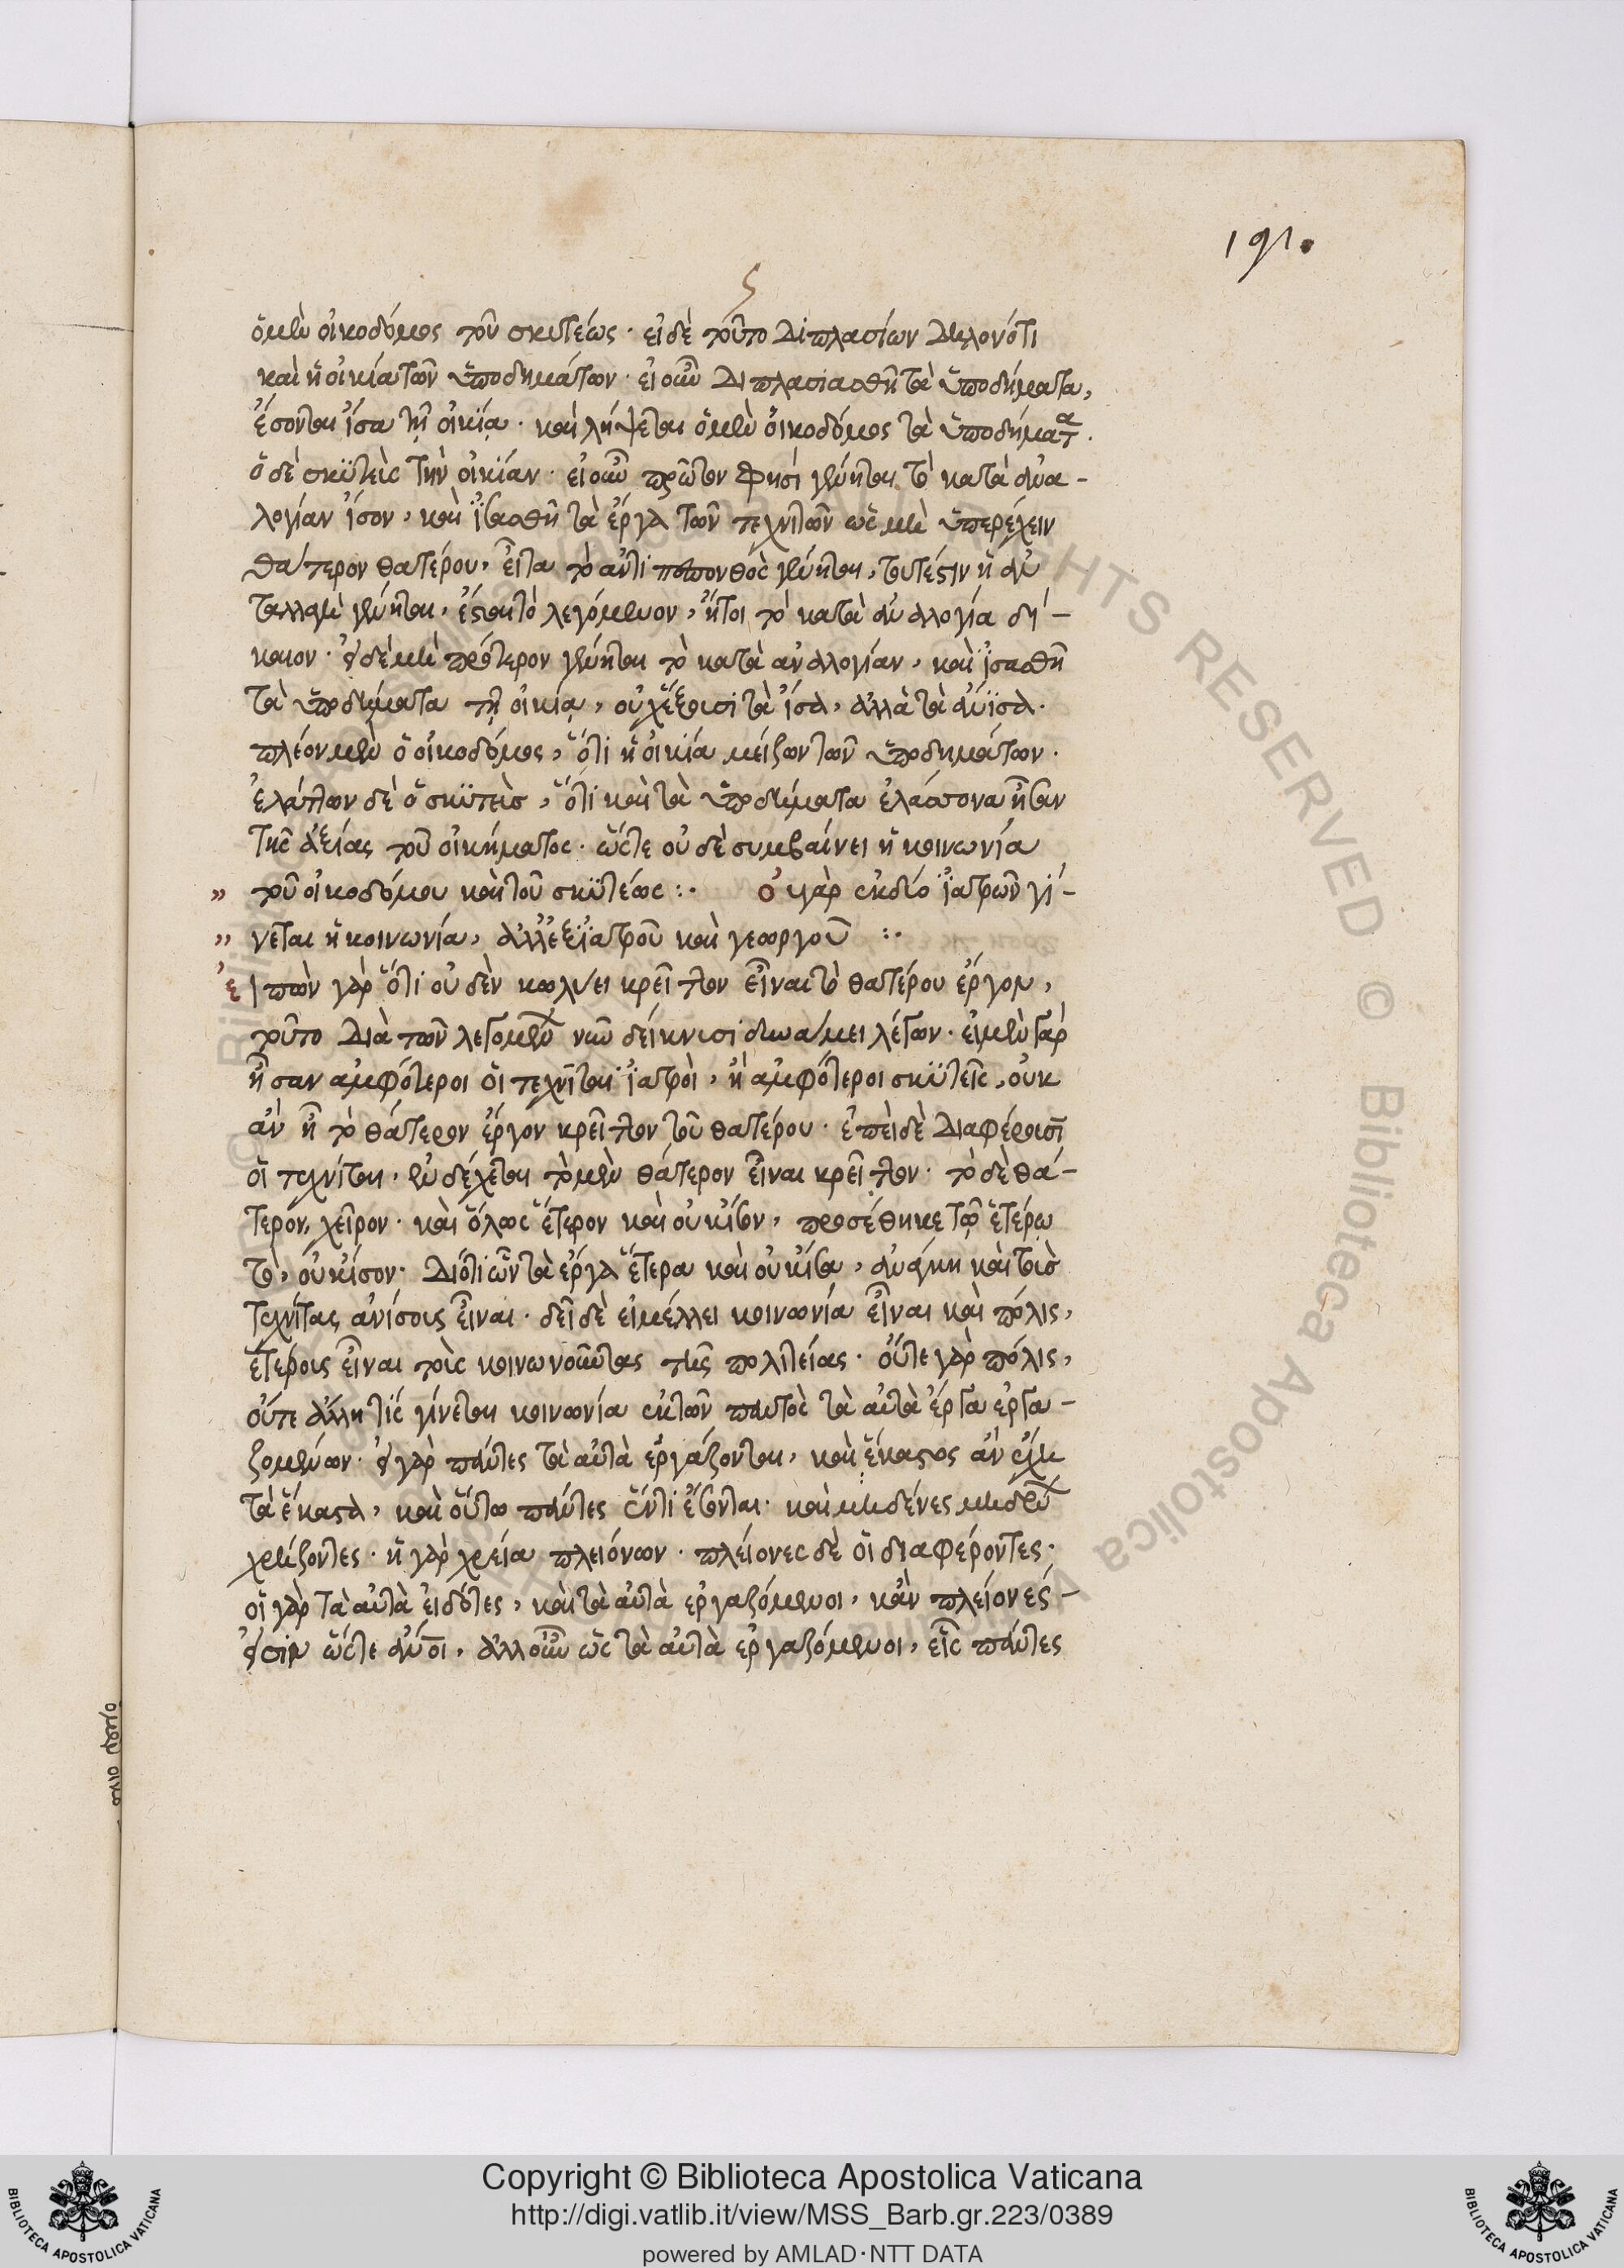 191.
ς
ὁ μὲν οἰκοδόμος τοῦ σκυτέως· εἰ δὲ τοῦτο διπλασίων δηλονότι
καὶ ἡ οἰκία τῶν ὑποδημάτων· εἰ οὖν διπλασιασθῇ τὰ ὑποδήματα,
ἔσονται ἴσα τῇ οἰκίᾳ· καὶ λήψεται ὁ μὲν οἰκοδόμος τὰ ὑποδήματα.
ὁ δὲ σκϋτεὺς τὴν οἰκίαν· εἰ οὖν πρῶτον φησὶ γένηται τὸ κατὰ ἀνα-
λογίαν ἴσον, καὶ ἰσασθῇ τὰ ἔργα τῶν τεχνιτῶν ὡς μὴ ὑπερέχειν
θάτερον θατέρου, εἶτα τὸ ἀντιπεπονθὸς γένηται, τουτέστιν ἡ ἀν
ταλλαγὴ γένηται, ἔσται τὸ λεγόμενον, ἤτοι τὸ κατὰ ἀναλογία δί-
καιον· εἰ δὲ μὴ πρότερον γένηται τὸ κατὰ ἀναλογίαν, καὶ ἰσασθῇ
τὰ ὑποδήματα τῇ οἰκίᾳ, οὐχ ἕξουσι τὰ ἴσα, ἀλλὰ τὰ ἄνϊσα.
πλέον μὲν ὁ οἰκοδόμος, ὅτι ἡ οἰκία μείζων τῶν ὑποδημάτων.
ἐλάττων δὲ ὁ σκϋτεὺς, ὅτι καὶ τὰ ὑποδήματα ἐλάσσονα ἦσαν
τῆς ἀξίας τοῦ οἰκήματος· ὥστε οὐδὲ συμβαίνει ἡ κοινωνία
" τοῦ οἰκοδόμου καὶ τοῦ σκϋτέως :· οὐ γὰρ ἐκ δύο ἰατρῶν γί-
" νεται ἡ κοινωνία, ἀλλ' ἐξ ἰατροῦ καὶ γεωργοῦ :·
εἰπὼν γὰρ ὅτι οὐδὲν κωλύει κρεῖττον εἶναι τὸ θατέρου ἔργον,
τοῦτο διὰ τῶν λεγομένων νῦν δείκνυσι δυνάμει λέγων· εἰ μὲν γὰρ
ἦσαν ἀμφότεροι οἱ τεχνῖται ἰατροὶ, ἢ ἀμφότεροι σκϋτεῖς, οὐκ
ἂν ἦ τὸ θάτερον ἔργον κρεῖττον τοῦ θατέρου· ἐπεὶ δὲ διαφέρουσι
οἱ τεχνίται, ἐνδέχεται τὸ μὲν θάτερον εἶναι κρεῖττον· τὸ δὲ θά-
τερον, χεῖρον· καὶ ὅλως ἕτερον καὶ οὐκ ἴσον, προσέθηκε τῷ ἑτέρῳ
τὸ, οὐκ ἴσον· διότι ὧν τὰ ἔργα ἕτερα καὶ οὐκ ἴσα, ἀνάγκη καὶ τοὺς
τεχνίτας ἀνίσους εἶναι· δεῖ δὲ εἰ μέλλει κοινωνία εἶναι καὶ πόλις,
ἑτέρους εἶναι τοὺς κοινωνοῦντας τῆς πολιτείας· οὔτε γὰρ πόλις,
οὔτε ἄλλη τὶς γίνεται κοινωνία ἐκ τῶν παντὸς τὰ αὐτὰ ἔργα ἐργα-
ζομένων· εἰ γὰρ πάντες τὰ αὐτὰ ἐργάζονται, καὶ ἕκαστος ἂν ἔχη
τὰ ἕκαστα, καὶ οὕτω πάντες ἔσονται· καὶ μηδένες μηδὲν
χρήζοντες· ἡ γὰρ χρεία πλειόνων· πλείονες δὲ οἱ διαφέροντες·
οἱ γὰρ τὰ αὐτὰ εἰδότες, καὶ τὰ αὐτὰ ἐργαζόμενοι, κἂν πλείονες
ὥστε ἀλλ' οὖν ὡς τὰ αὐτὰ ἐργαζόμενοι, εἷς πάντες
Copyright © Biblioteca Apostolica Vaticana
http://digi.vatlib.it/view/MSS_Barb.gr.223/0389
powered by AMLAD·NTT DATA
BIBLIOTECA APOSTOLICA VATICANA
BIBLIOTECA APOSTOLICA VATICANA